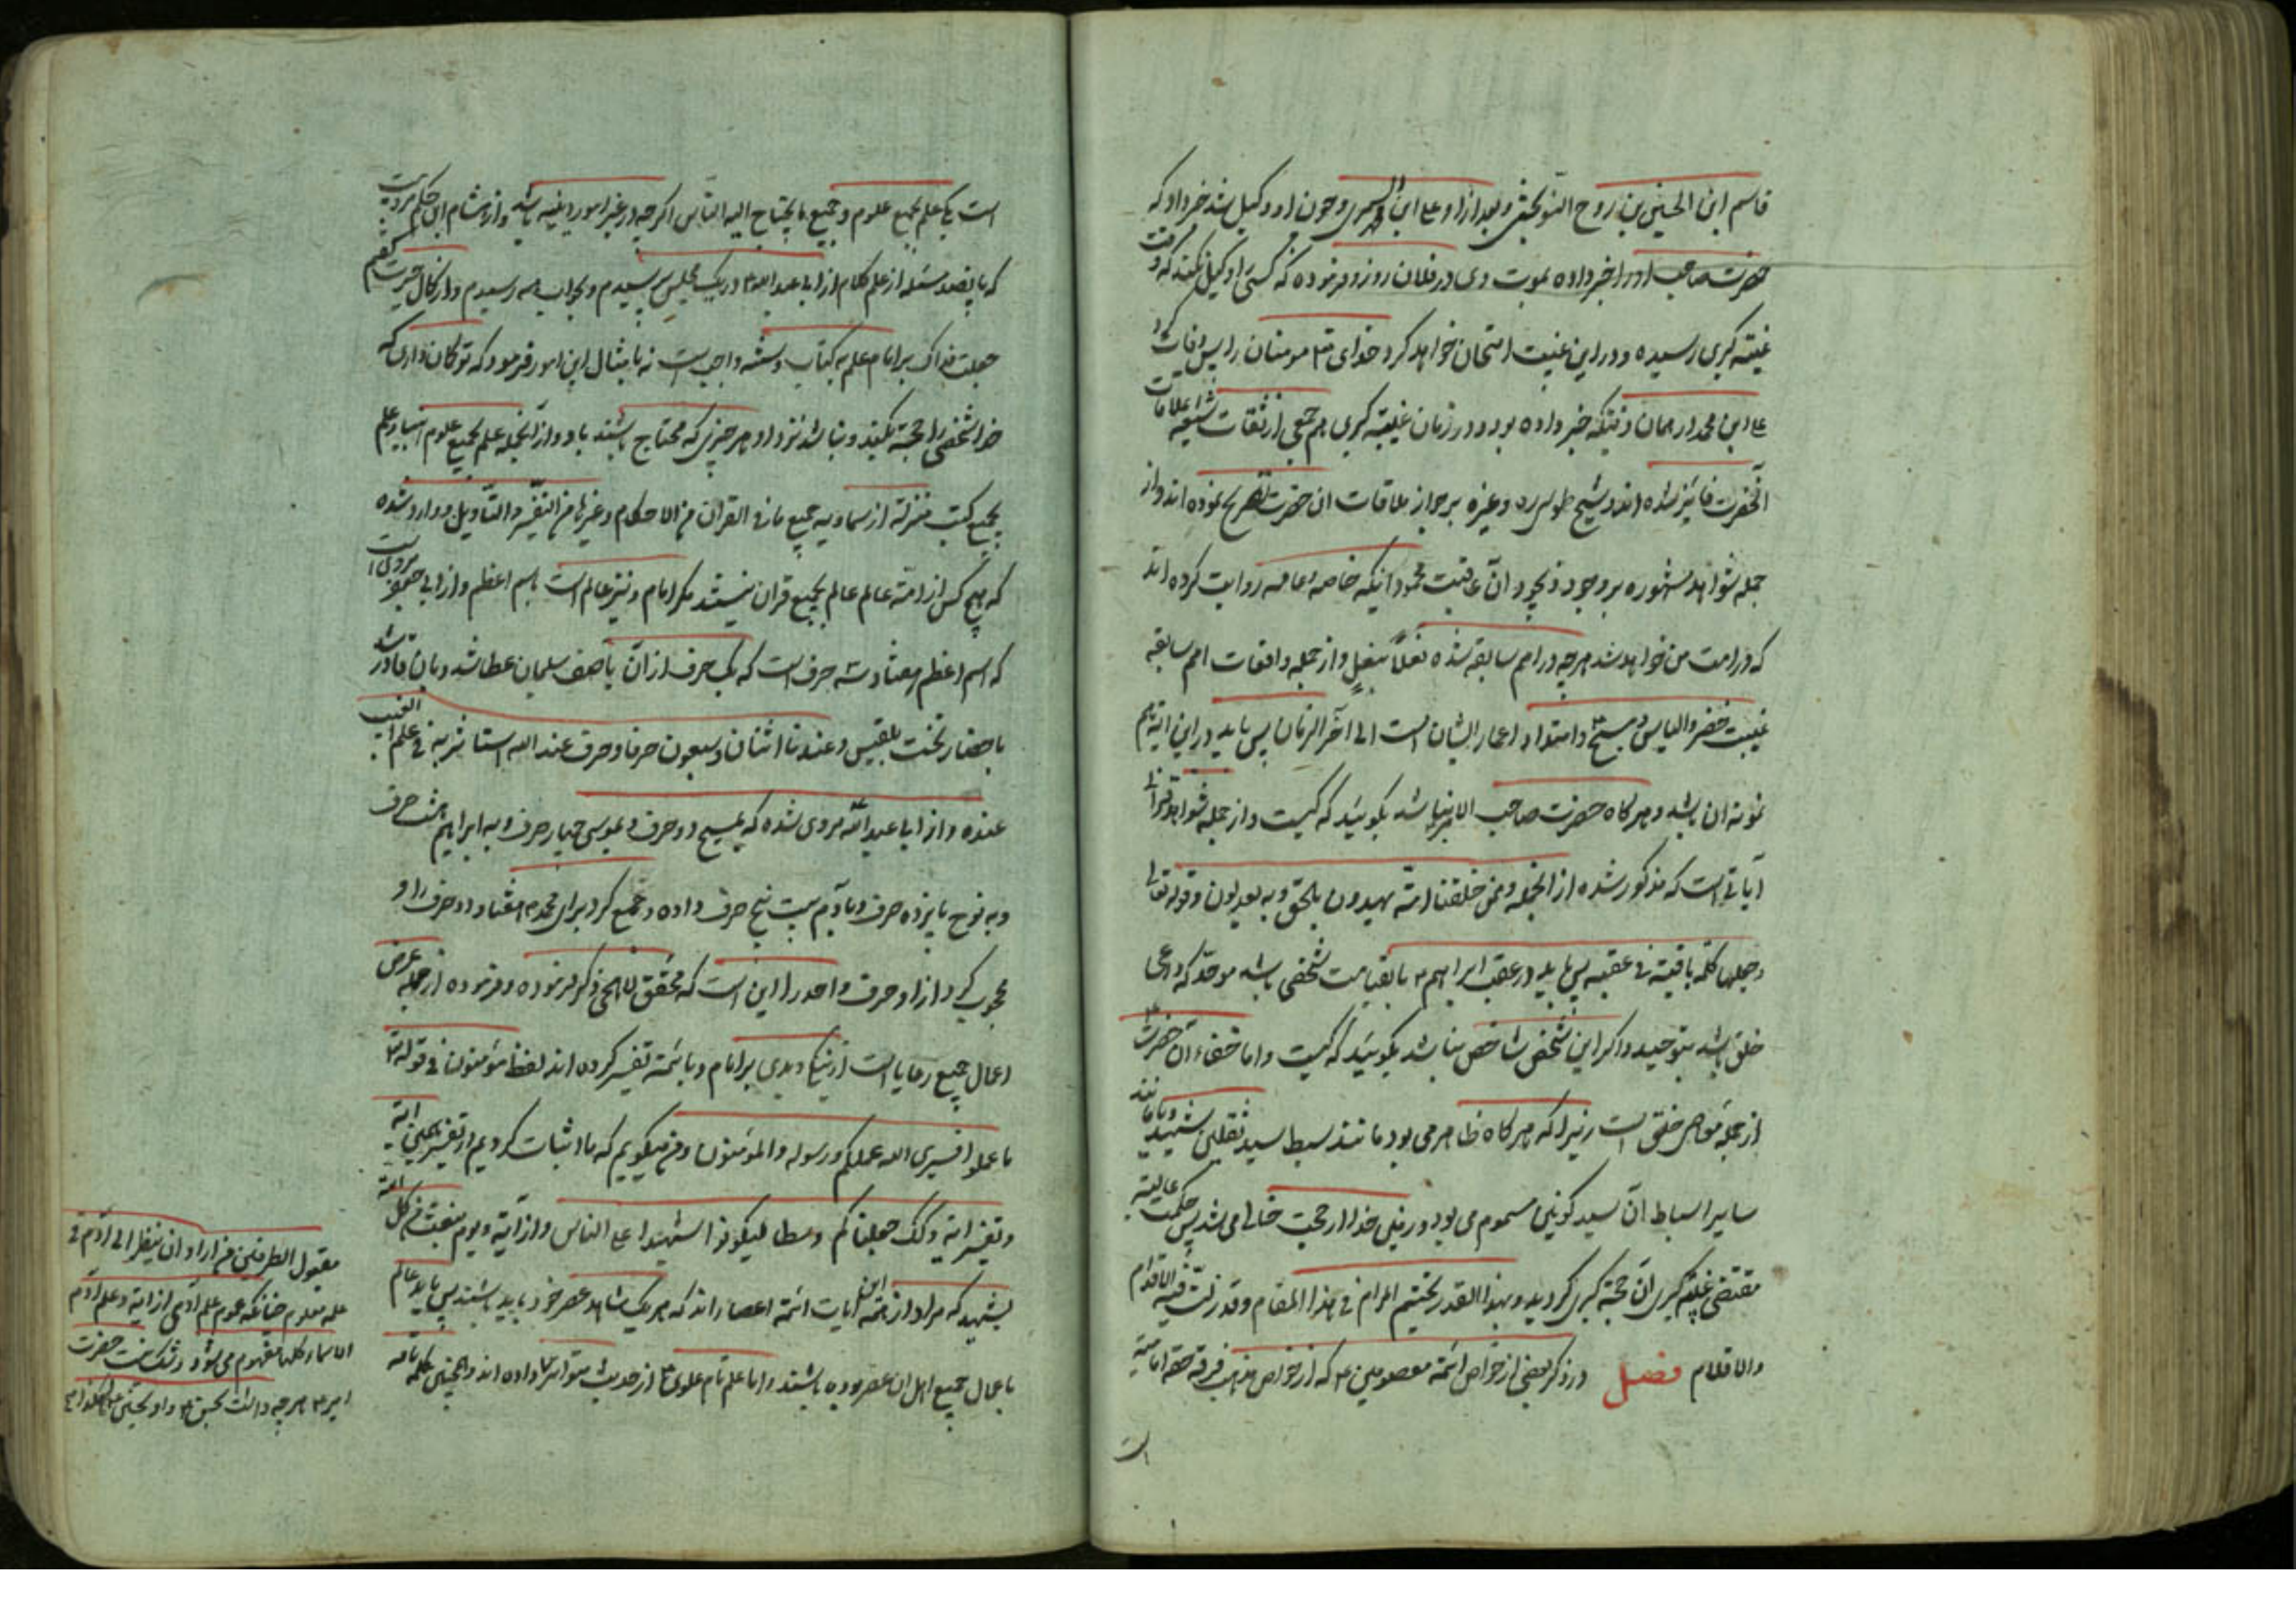 قاسم ابن الحسین بن روح النوبختی و بعد از او علی ابن السمری و چون او وکیل شد خبر داد که
حضرت صاحب او را خبر داده بموت وی در فلان روز و فرموده که کسی را وکیل نکند که وقت
غیبته کبری رسیده و در این غیبت امتحان خواهد کرد خدای تع مومنان را پس وفات شد
علی ابن محمد در همان وقتیکه خبر داده بود و در زمان غیبته کبری هم جمعی از ثقات شیعه بملاقات
آنحضرت فایز شده اند و شیخ طوسی ره و غیره بر جواز ملاقات ان حضرت تصریح نموده اند و از
جمله شواهد مشهوره بر وجود ذیجود آن عاقبت محمود آنیکه خاصه و عامه روایت کرده اند
که در امت من خواهد شد هر چه در امم سابقه شده نعلاً بنعلٍ و از جمله واقعات امم سابقه
غیبت خضر و الیاس و مسیح و امتداد اعمار ایشان است الی آخر الزمان پس باید در این امة هم
نمونه ان باشد و هر کاه حضرت صاحب الامر نباشد بکوئید که کیست و از جمله شواهد قرانی
آیاتی است که مذکور شده از انجمله و ممن خلقنا امة یهدون بالحق و به یعدلون و قوله تعالی
و جعلها کلمة باقیة فی عقبه پس باید در عقب ابراهیم ع تا بقیامت شخصی باشد موحد که داعی
خلق باشد بتوحید و اکر این شخص شاخص نباشد بکوئید که کیست و اما خفاء آن حضرت ع
از جمله خفی است زیرا که هر کاه ظاهر می بود مانند سبط سید ثقلین شهید و یا مانند
سایر اسباط آن سید کونین مسموم می بود و زمین خدا از حجت خالی می شد پس حکمت عالیه
مقتضی غیبته کبرای آن حجة کبری کردید و بهذا القدر نختتم المرام فی هذا المقام و قد زلت فیه الاقدام
والاقلام فصل در ذکر بعضی از خواص ائمة معصومین ع که از خواص مذهب فرقه حقه امامیه
است
است یکی علم بجمیع علوم و جمیع ما یحتاج الیه الناس اکر چه در غیر امور دینیه باشد و از هشام ابن حکم مرویست
که پانصد مسئله از علم کلام از ابی عبد الله ع در یک مجلس پرسیدم و بجواب همه رسیدم و از کمال حیرت کفتم
جعلت فداک بر امام علم به کتاب و سنته واجب است نه بامثال این امور فرمود که تو کمان داری که
خدا شخصی را حجة بکند و نباشد نزد او هر چیزی که محتاج باشند باو و از آنجمله علم بجمیع علوم انبیا و علم
بجمیع کتب منزلة از سماویه جمیع ما فی القران من الاحکام و غیرها من التفسیر و التأویل و وارد شده
که هیچ کس از امة عالم بجمیع قران نیستند مکر امام و نیز عالم است باسم اعظم و از ابی جعفر مرویست
که اسم اعظم هفتاد و سه حرف است که یک حرف از آن باصف سلیمان عطا شد و بان قادر شد
باحضار تخت بلقیس و عندنا اثنان و سبعون حرفا و حرف عند الله استاثر به فی علم الغیب
عنده و از ابا عبد الله مروی شده که بمسیح دو حرف و بموسی چهار حرف و به ابراهیم هشت حرف
و به نوح پانزده حرف و بآدم بیست پنج حرف داده و جمیع کرد برای محمد ص هفتاد و دو حرف را و
محجوب کرد از او حرف واحد را این است که محقق لاهجی ذکر فرموده و فرموده از جمله عرض
اعمال جمیع رعایا است از نیکی و بدی بر امام و بائمة تفسیر کرده اند لفظ مؤمنون فی قوله تع
ما عملوا فسیری الله عملکم و رسوله والمؤمنون و من میکویم که ما اثبات کردیم از تفسیر همین ایة
و تفسیر ایة وکذلک جعلناکم وسطا لیکونوا شهدا علی الناس و از آیة و یوم نبعث من کل امة
بشهید که مراد از ائمه این آیات ائمة اعصار اند که هر یک شاهد عصر خود باید باشند پس باید عالم
باعمال جمیع اهل ان عصر بوده باشند و اما علم تام علوی ع از حدیث متواتر داده اند و همچنین کلمه تامه
مقبول الطرفین من اراد ان ینظر الی آدم فی
علمه معلوم چنانکه عموم علم آدمی از ایة و علم آدم
الاسماء کلها مفهوم می شود و شک نیست حضرت
امیر ع هر چه دانست